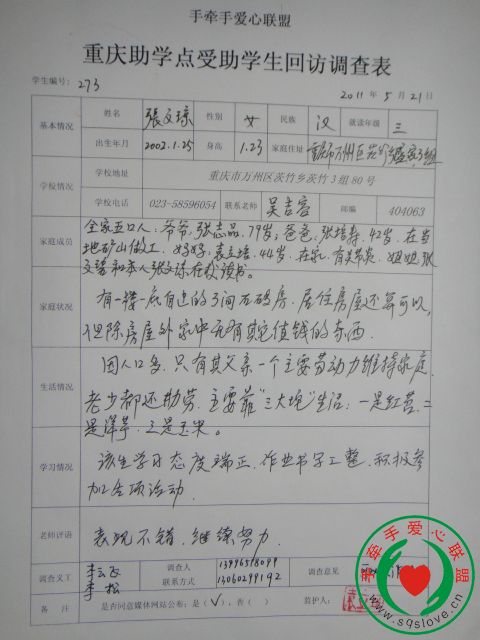 手牵手爱心联盟
重庆助学点受助学生回访调查表
学生编号: 273
2011 年 5 月 21 日
基本情况 姓名 張文琼 性别 女 民族 汉 就读年级 三
出生年月 2002.1.25 身高 1.23 家庭住址 重庆市万州区茨竹乡
学校情况 学校地址 重庆市万州区茨竹乡茨竹3组80号
学校电话 023-58596054 联系老师 吴吉蓉 邮编 404063
家庭成员 全家五口人: 爷爷, 张志品, 79岁; 爸爸, 张培寿, 42岁, 在当
地矿山做工, 妈妈: 袁立培, 44岁, 在家, 姐姐, 张
文 和本人张文琼在校读书。
家庭状况 有一楼一底自建的3间瓦砖房, 居住房屋还算可以,
但除房屋外家中无有其它值钱的东西
生活情况 因人口多, 只有其父亲一个主要劳动力维持家庭.
老少都还勤劳. 主要靠“三大坨”生活: 一是红苕, 二
是洋芋, 三是玉米。
学习情况 该生学习态度端正, 作业书写工整, 积极参
加各项活动.
老师评语 表现不错, 继续努力.
调查义工 李云飞 李松 调查人联系方式 13996578099 13060299192 调查意见
备 注 是否同意媒体网站公布: 是 (√), 否 ( ) 监护人:
手牵手爱心联盟
www.sqslove.cn